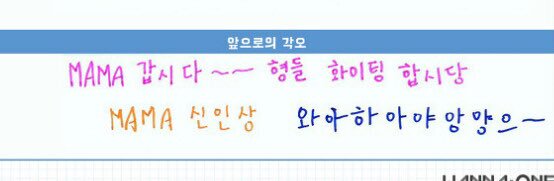 앞으로의 각오
MAMA 갑시다~~ 형들 화이팅 합시당
MAMA 신인상 와아하아야앙먕으~
WANNA·ONE